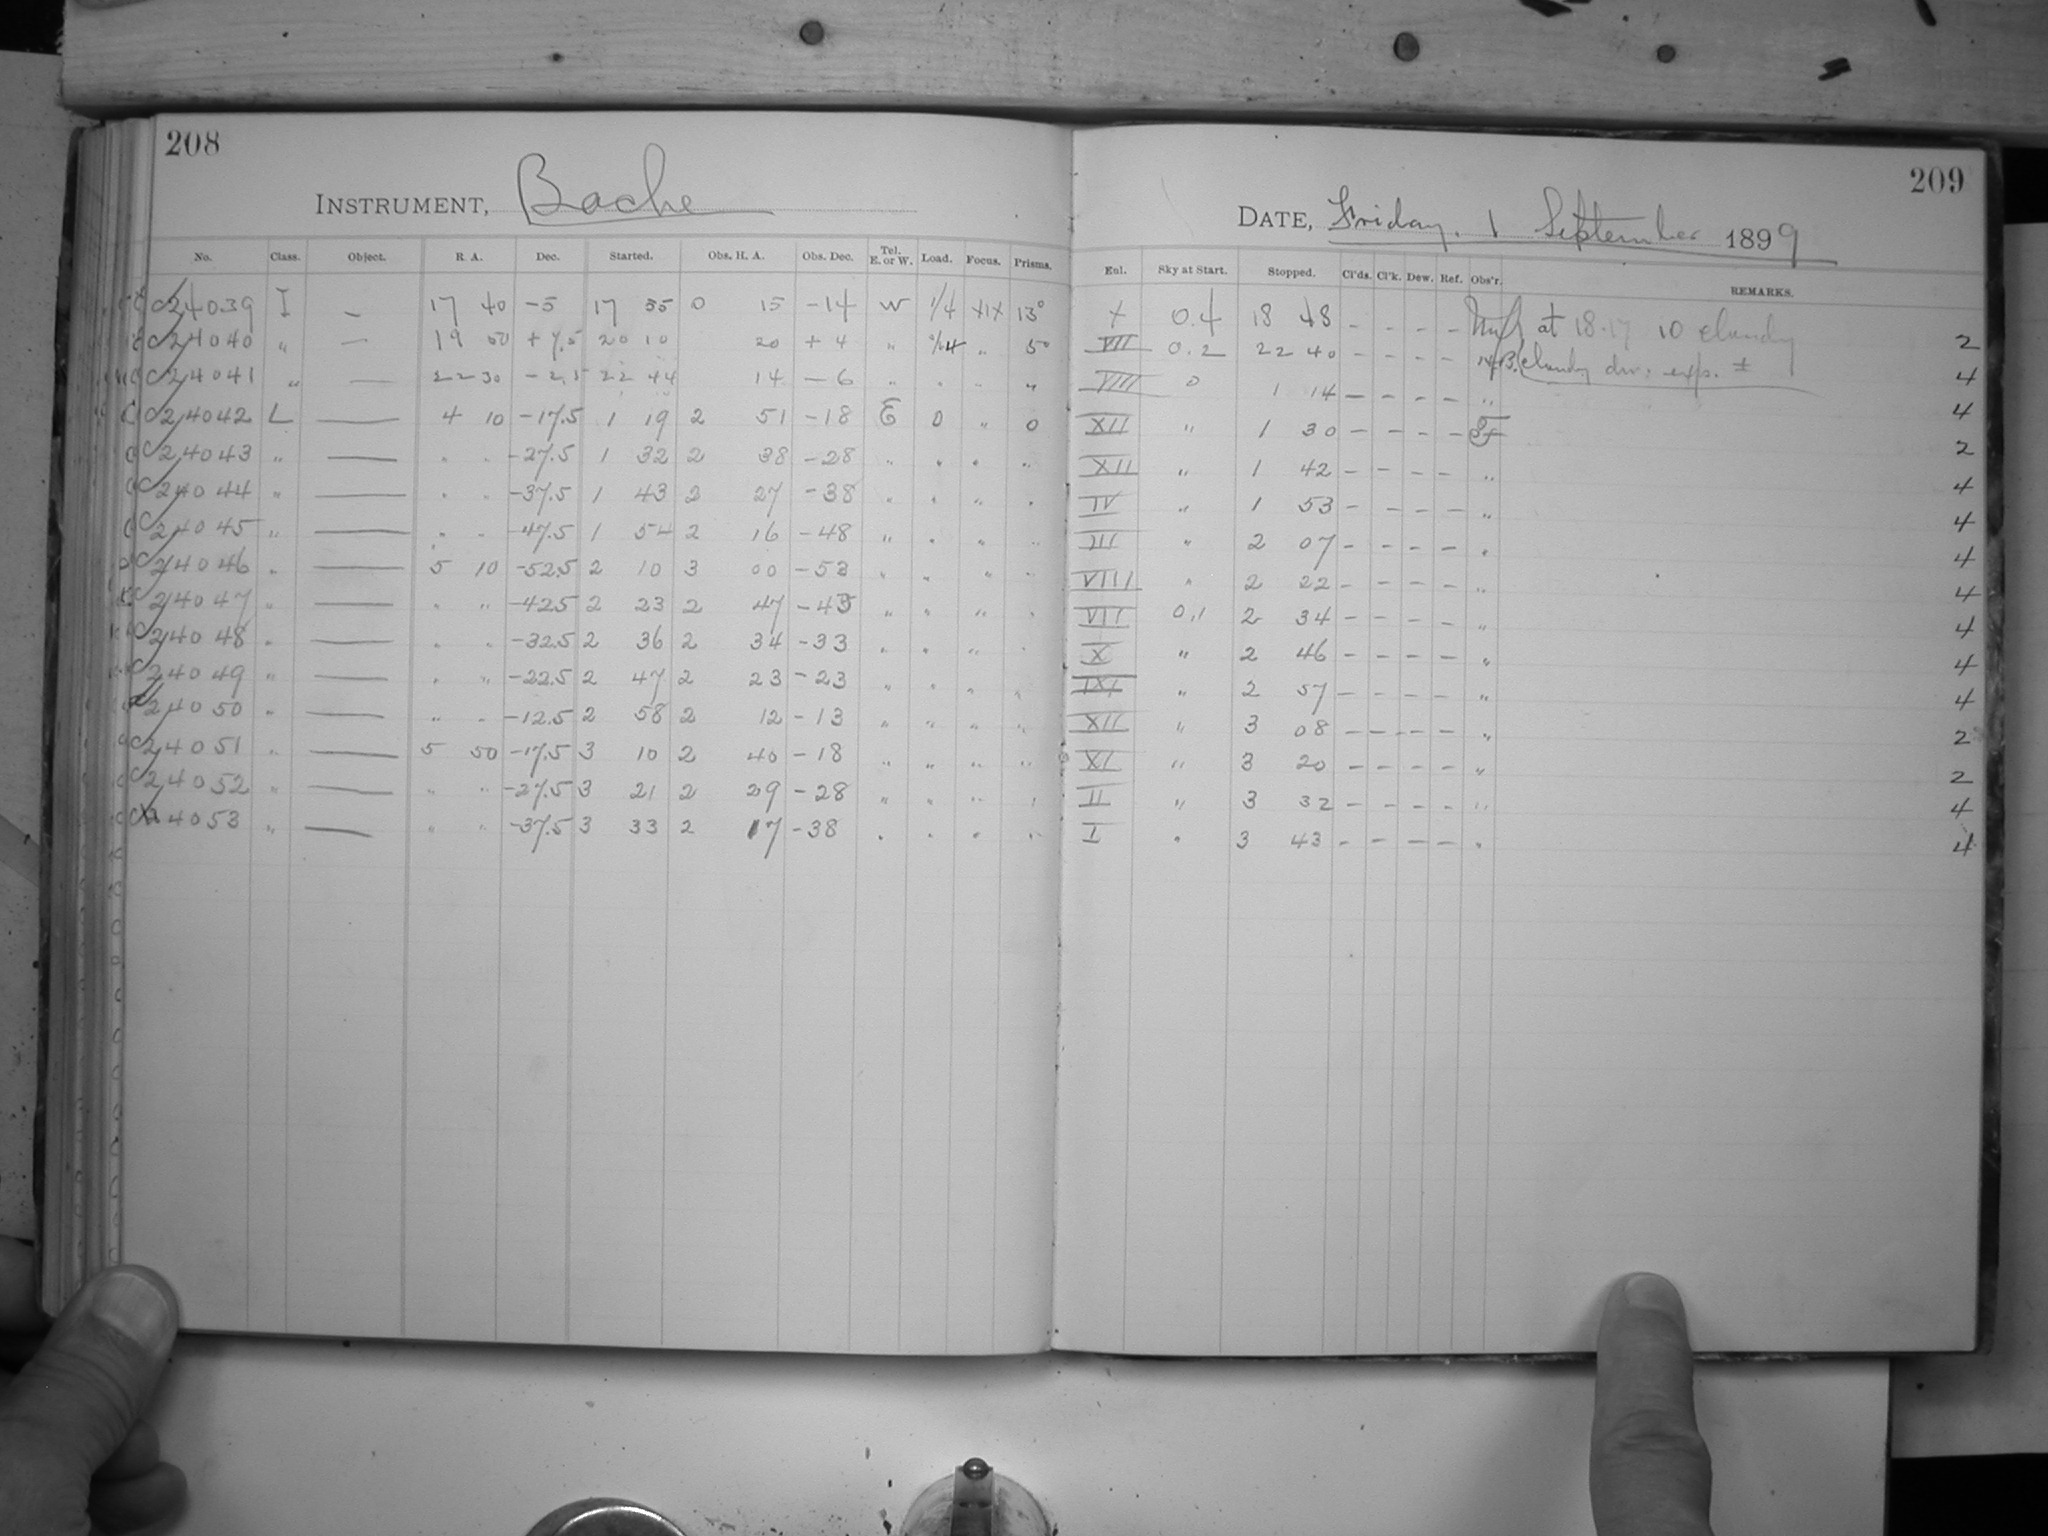 208
INSTRUMENT, Bache
No. Class. Object. R. A. Dec. Started. Obs. H. A. Obs. Dec. Tel. E. or W. Load. Focus. Prisms.
C24039 I — 17 40 -5 17 55 0 15 -14 W 1/4 XIX 13°
C24040 " — 19 50 +7.5 20 10 20 +4 " " 5°
C24041 " — 22 30 -2.5 22 44 14 -6 " " " "
C24042 L — 4 10 -17.5 1 19 2 51 -18 E 0 " 0
C24043 " — " " -27.5 1 32 2 38 -28 " " " "
C24044 " — " " -37.5 1 43 2 27 -38 " " " "
C24045 " — " " -47.5 1 54 2 16 -48 " " " "
C24046 " — 5 10 -52.5 2 10 3 00 -53 " " " "
C24047 " — " " -42.5 2 23 2 47 -43 " " " "
C24048 " — " " -32.5 2 36 2 34 -33 " " " "
C24049 " — " " -22.5 2 47 2 23 -23 " " " "
C24050 " — " " -12.5 2 58 2 12 -13 " " " "
C24051 " — 5 50 -17.5 3 10 2 40 -18 " " " "
C24052 " — " " -27.5 3 21 2 29 -28 " " " "
C24053 " — " " -37.5 3 33 2 17 -38 " " " "
209
DATE, Friday. 1 September 1899
Enl. Sky at Start. Stopped. Cl'ds. Cl'k. Dew. Ref. Obs'r. REMARKS.
X 0.4 18 48 - - - - at 18-17 10 cloudy 2
VII 0.2 22 40 - - - - " N.B. cloudy dur. exp. ± 4
VIII 0 1 14 - - - - " 4
XII " 1 30 - - - - 2
XII " 1 42 - - - - " 4
IV " 1 53 - - - - " 4
III " 2 07 - - - - " 4
VIII " 2 22 - - - - " 4
VII 0.1 2 34 - - - - " 4
X " 2 46 - - - - " 4
IXI " 2 57 - - - - " 4
XII " 3 08 - - - - " 2
XI " 3 20 - - - - " 2
II " 3 32 - - - - " 4
I " 3 43 - - - - " 4